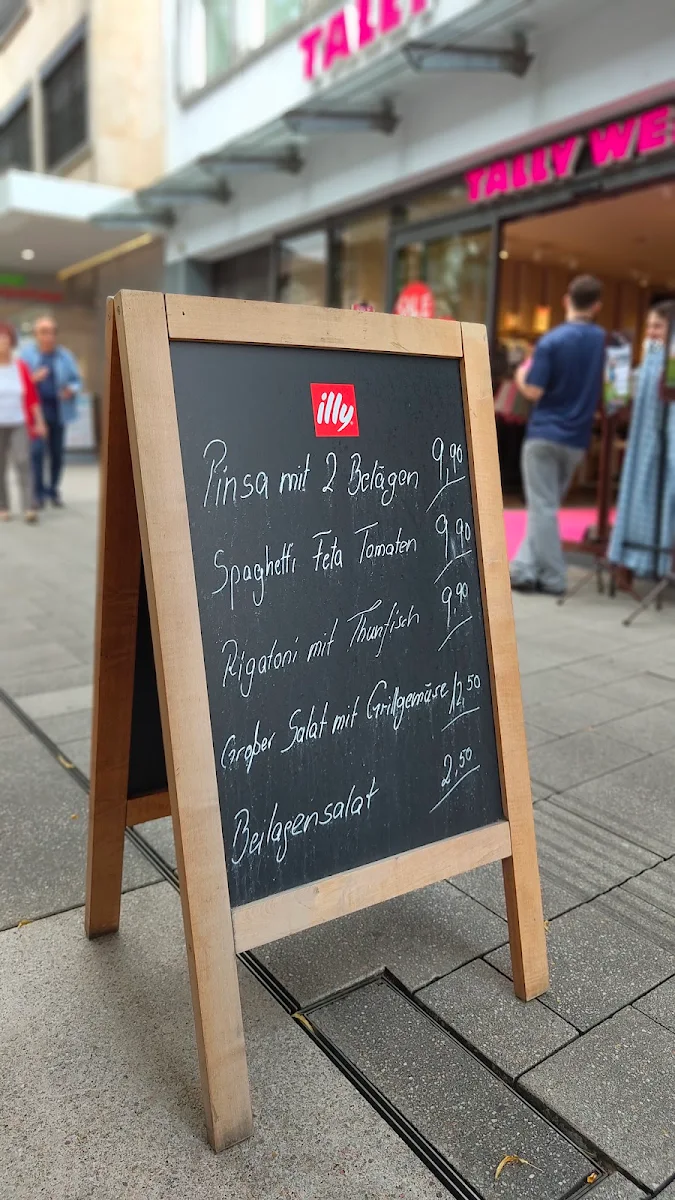 TALLY
TALLY WE
SALE
illy
Pinsa mit 2 Belägen 9,90
Spaghetti Feta Tomaten 9,90
Rigatoni mit Thunfisch 9,90
Großer Salat mit Grillgemüse 12,50
Beilagensalat 2,50